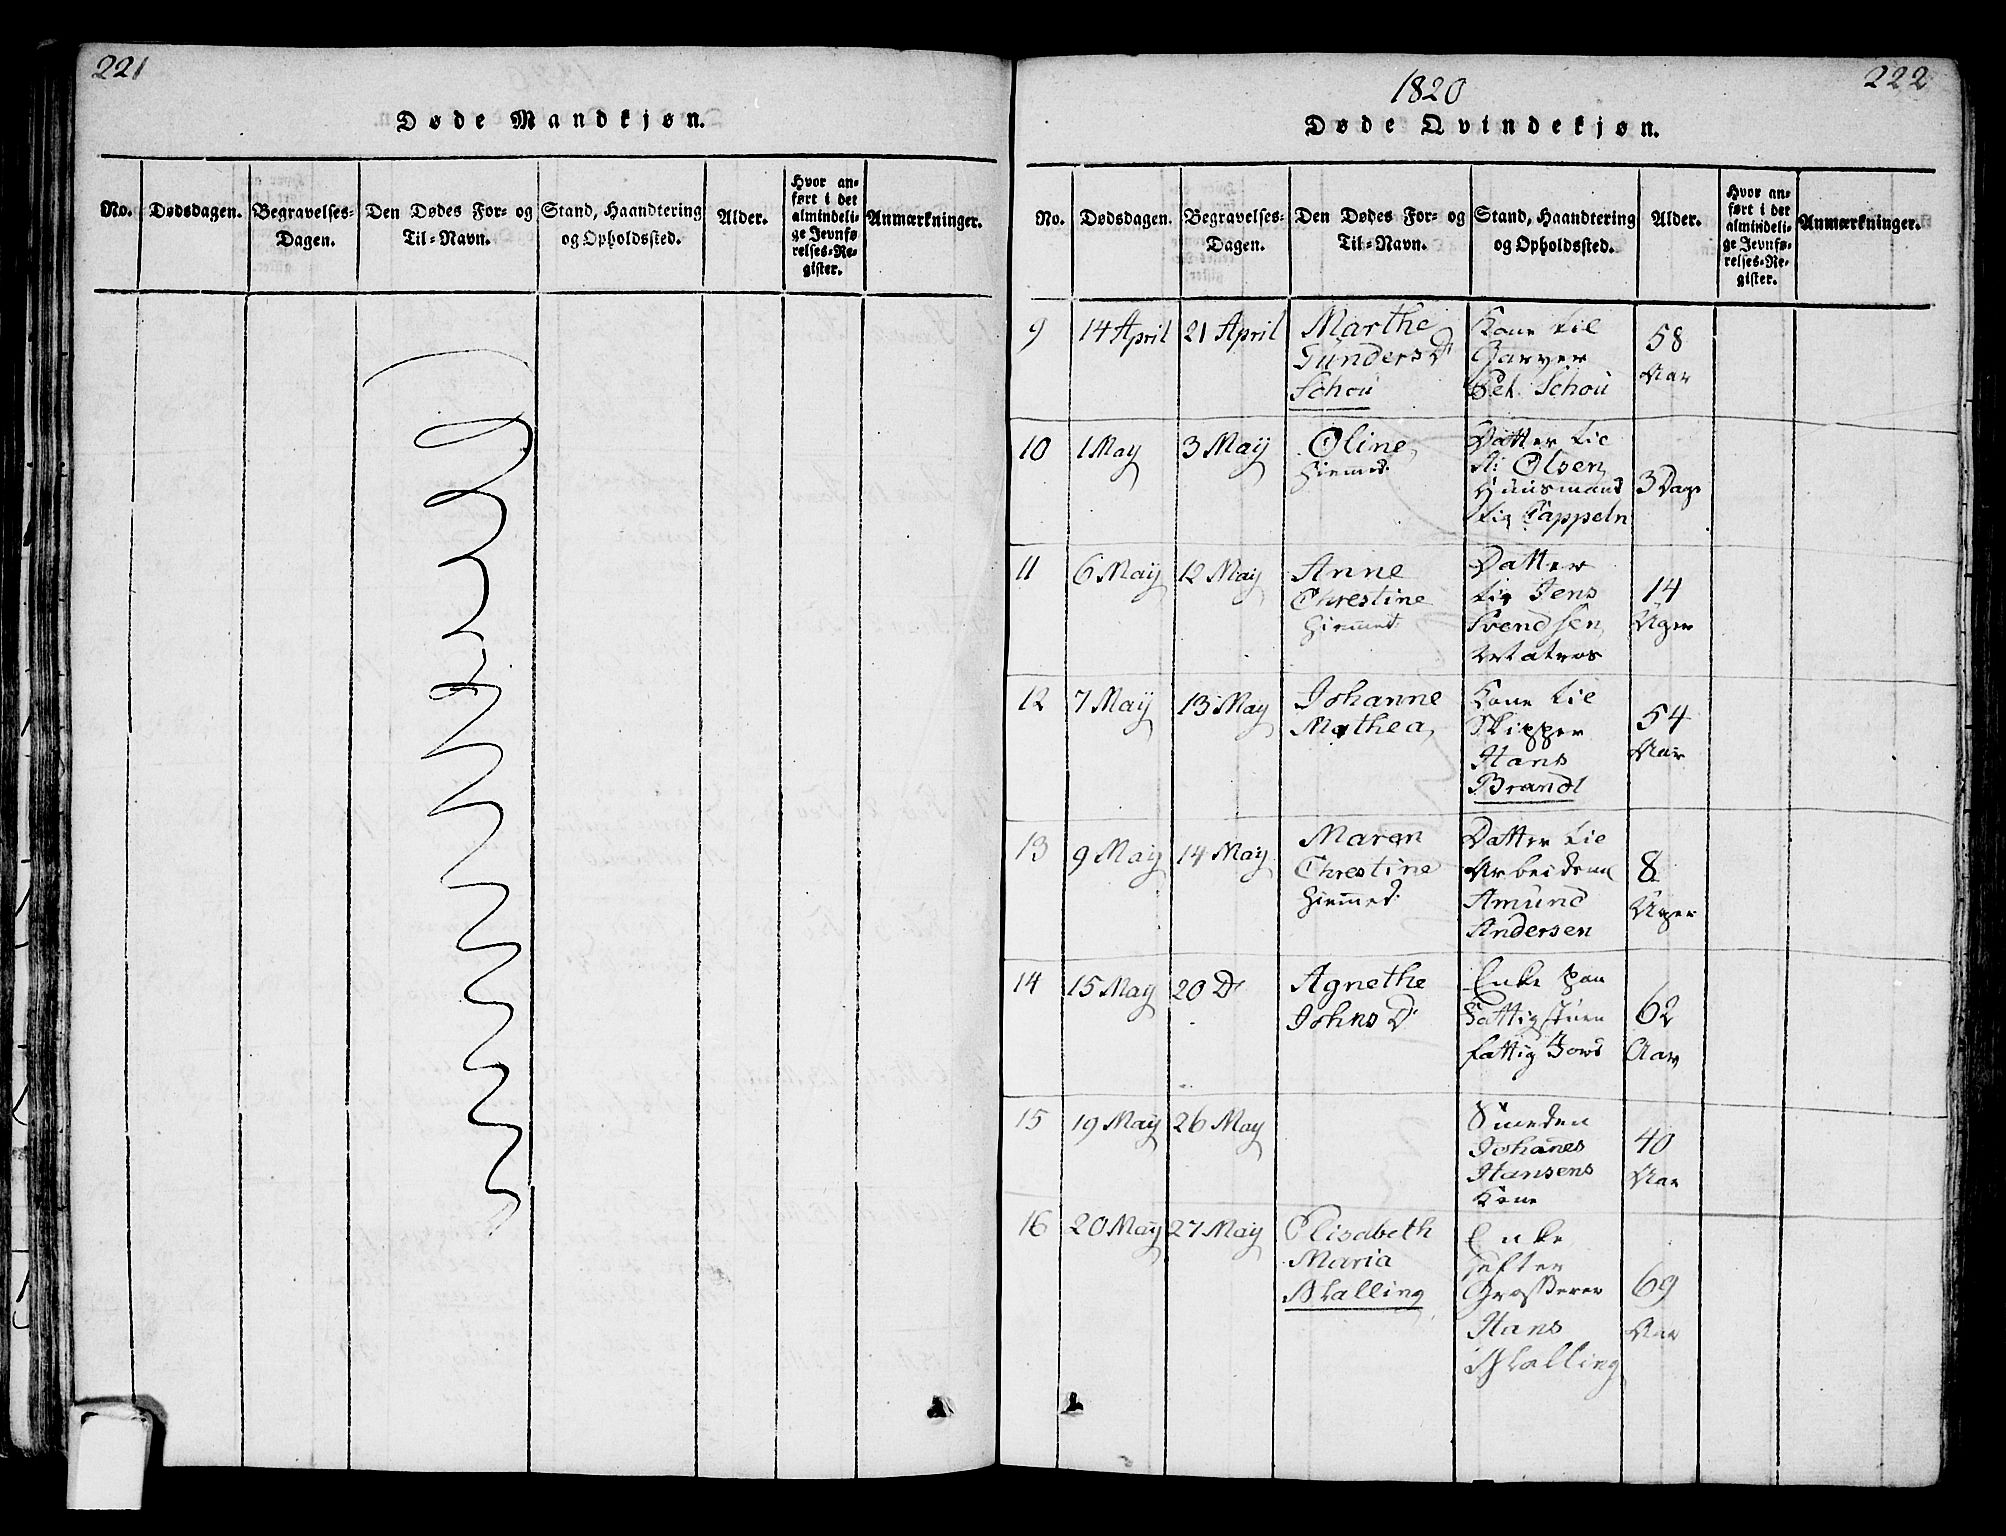 221
Døde Mandkjøn.
No.
Dødsdagen.
Begravelses-
Dagen.
Den Dødes For- og
Til-Navn.
Stand, Haandtering
og Opholdssted.
Alder.
Hvor an-
ført i det
almindeli-
ge Jevnfø-
relses-Re-
gister.
Anmærkninger.
1820
222
Døde Qvindekjøn.
No.
Dødsdagen.
Begravelses-
Dagen.
Den Dødes For- og
Til-Navn.
Stand, Haandtering
og Opholdssted.
Alder.
Hvor an-
ført i det
almindeli-
ge Jevnfø-
relses-Re-
gister.
Anmærkninger.
9
14 April
21 April
Marthe
Gunders D
Schou
Kone til
Garver
Pet. Schou
58
Aar
10
1 May
3 May
Oline
Hiemmed.
Datter til
Olsen
Huusmand
Cappeln
3 Dage
11
6 May
12 May
Anne
Chrestine
Hiemmed.
Datter
til Jens
Svendsen
Matros
14
Uger
12
7 May
13 May
Johanne
Mathea
Kone til
Skipper
Hans
Brandt
54
Aar
13
9 May
14 May
Maren
Chrestine
Hiemmed.
Datter til
Arbeidsm
Amund
Andersen
8
Uger
14
15 May
20 D
Agnethe
Johns D
Enke paa
Fattigstuen
fattig Jord
62
Aar
15
19 May
26 May
Smeden
Johanes
Hansens
Kone
40
Aar
16
20 May
27 May
Elisabeth
Maria
Blalling
Enke
efter
Grosserer
Hans
Blalling
69
Aar